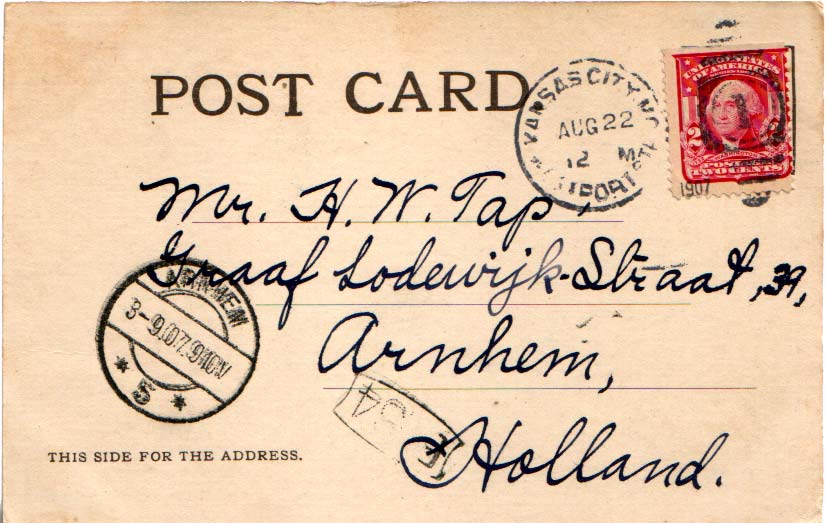 POST CARD
KANSAS CITY, MO.
AUG 22
12 M
1907
UNITED STATES
OF AMERICA
2
WASHINGTON
TWO CENTS
Mr. H. W. Tap,
Graaf Lodewijk-Straat, 39,
Arnhem,
Holland.
ARNHEM
3-9.07.9
5
54
THIS SIDE FOR THE ADDRESS.